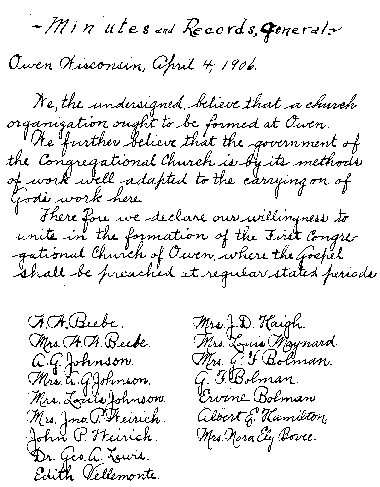 ~ Minutes and Records, General ~
Owen Wisconsin, April 4, 1906.
We, the undersigned, believe that a church
organization ought to be formed at Owen.
We further believe that the government of
the Congregational Church is by its methods
of work well adapted to the carrying on of
God's work here
There fore we declare our willingness to
unite in the formation of the First Congre-
gational Church of Owen, where the Gospel
shall be preached at regular stated periods
H. H. Beebe.
Mrs. H. H. Beebe.
A. G. Johnson.
Mrs. A. G. Johnson.
Mrs. Louis Johnson.
Mrs. Jno. P. Weirich.
John P. Weirich.
Dr. Geo. A. Lewis.
Edith Vellemonte.
Mrs. J. D. Haigh.
Mrs. Louis Maynard.
Mrs. G. F. Bolman.
G. F. Bolman.
Ervine Bolman
Albert E. Hamilton.
Mrs. Nora Ely Bovee.